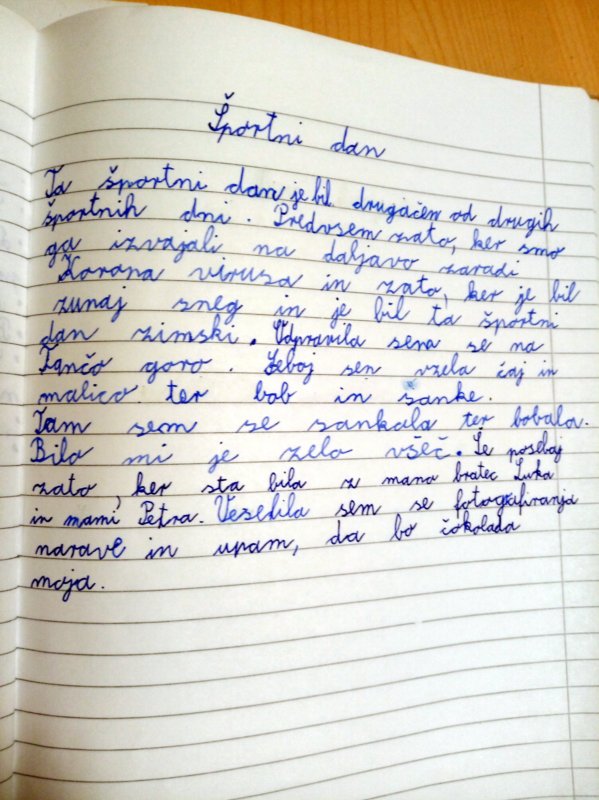 Športni dan
Ta športni dan je bil drugačen od drugih
športnih dni. Predvsem zato, ker smo
ga izvajali na daljavo zaradi
Korona virusa in zato, ker je bil
zunaj sneg in je bil ta športni
dan zimski. Odpravila sem se na
Tančo goro. Seboj sem vzela čaj in
malico ter bob in sanke.
Tam sem se sankala ter bobala.
Bilo mi je zelo všeč. Še posebaj
zato, ker sta bila z mano bratec Luka
in mami Petra. Veselila sem se fotografiranja
narave in upam, da bo čokolada
moja.